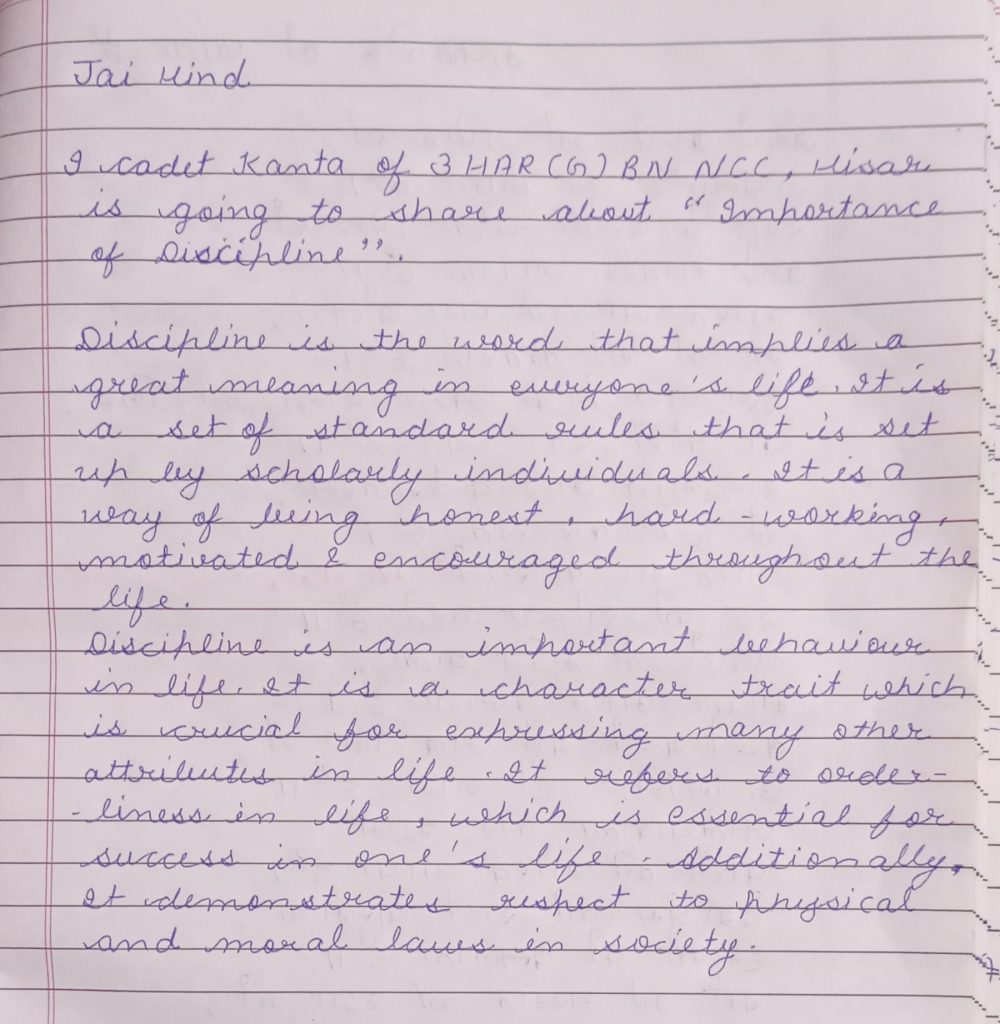 Jai Hind
I cadet Kanta of 3 HAR (G) BN NCC, Hisar
is going to share about "Importance
of Discipline".
Discipline is the word that implies a
great meaning in everyone's life. It is
a set of standard rules that is set
up by scholarly individuals. It is a
way of being honest, hard-working,
motivated & encouraged throughout the
life.
Discipline is an important behaviour
in life. It is a character trait which
is crucial for expressing many other
attributes in life. It refers to order-
-liness in life, which is essential for
success in one's life. Additionally,
It demonstrates respect to physical
and moral laws in society.